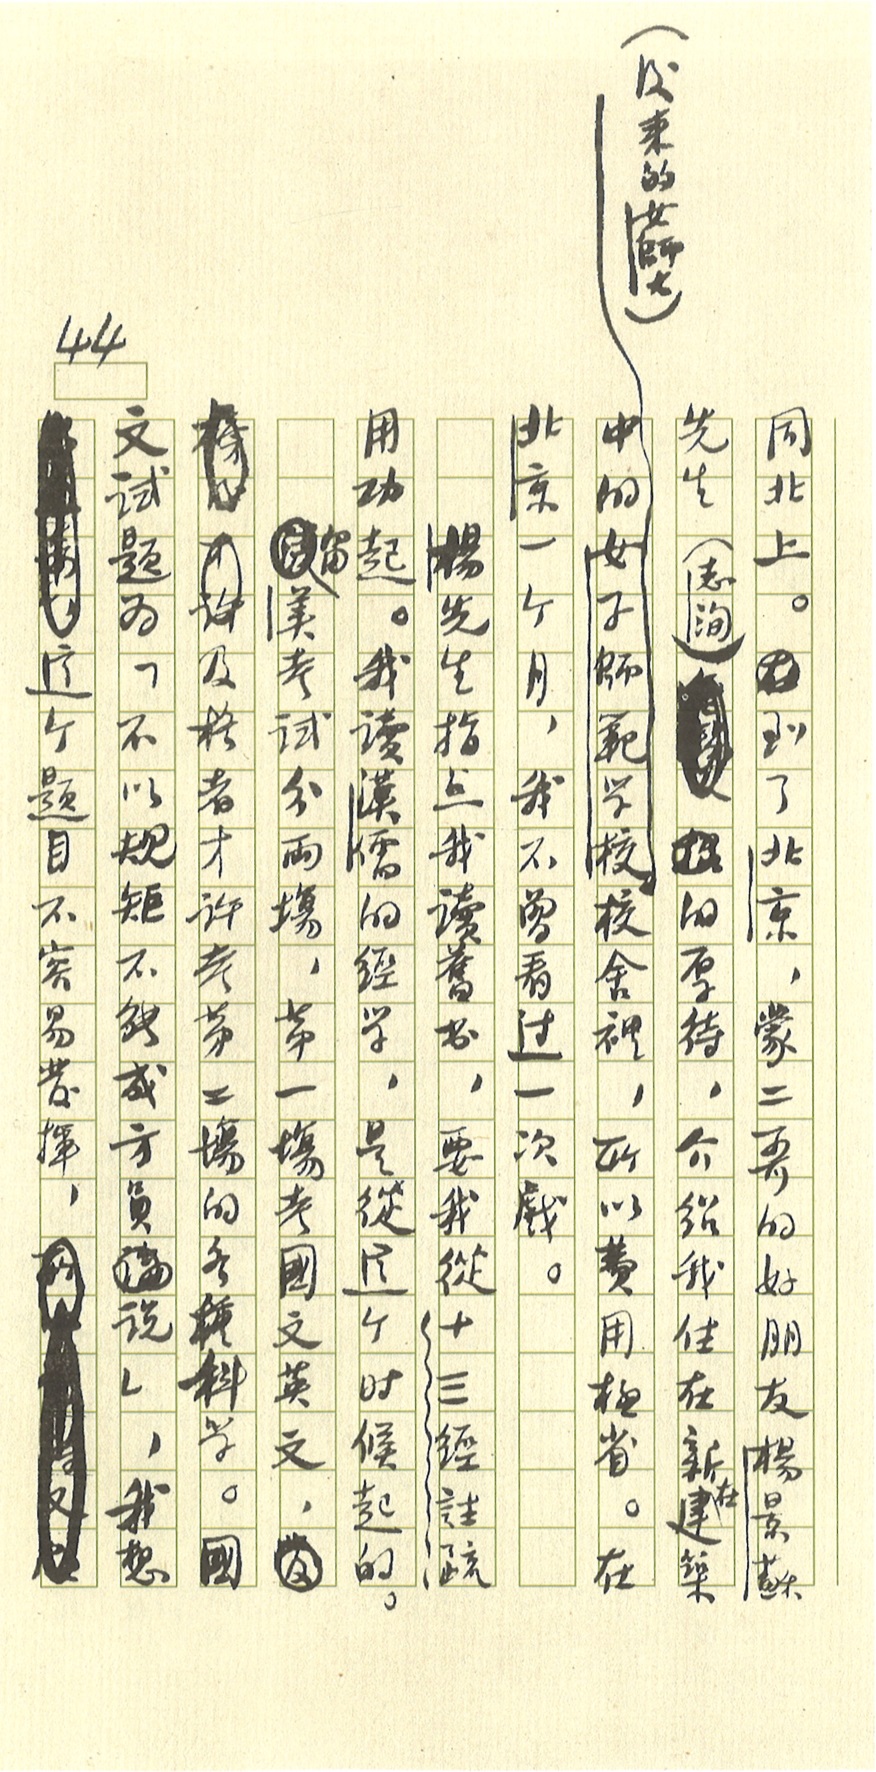 (后来的女師大)
44
同北上。到了北京，蒙二哥的好朋友楊景蘇
先生(志洵)的厚待，介紹我住在新在建築
中的女子師範学校校舍裡，所以費用極省。在
北京一个月，我不曾看过一次戲。
楊先生指点我读舊书，要我從十三經註疏
用功起。我读漢儒的經学，是從这个时候起的。
留美考試分兩場，第一場考國文英文，
及格者才許考第二場的各種科学。國
文試題为「不以規矩不能成方員说」，我想
这个題目不容易發揮，